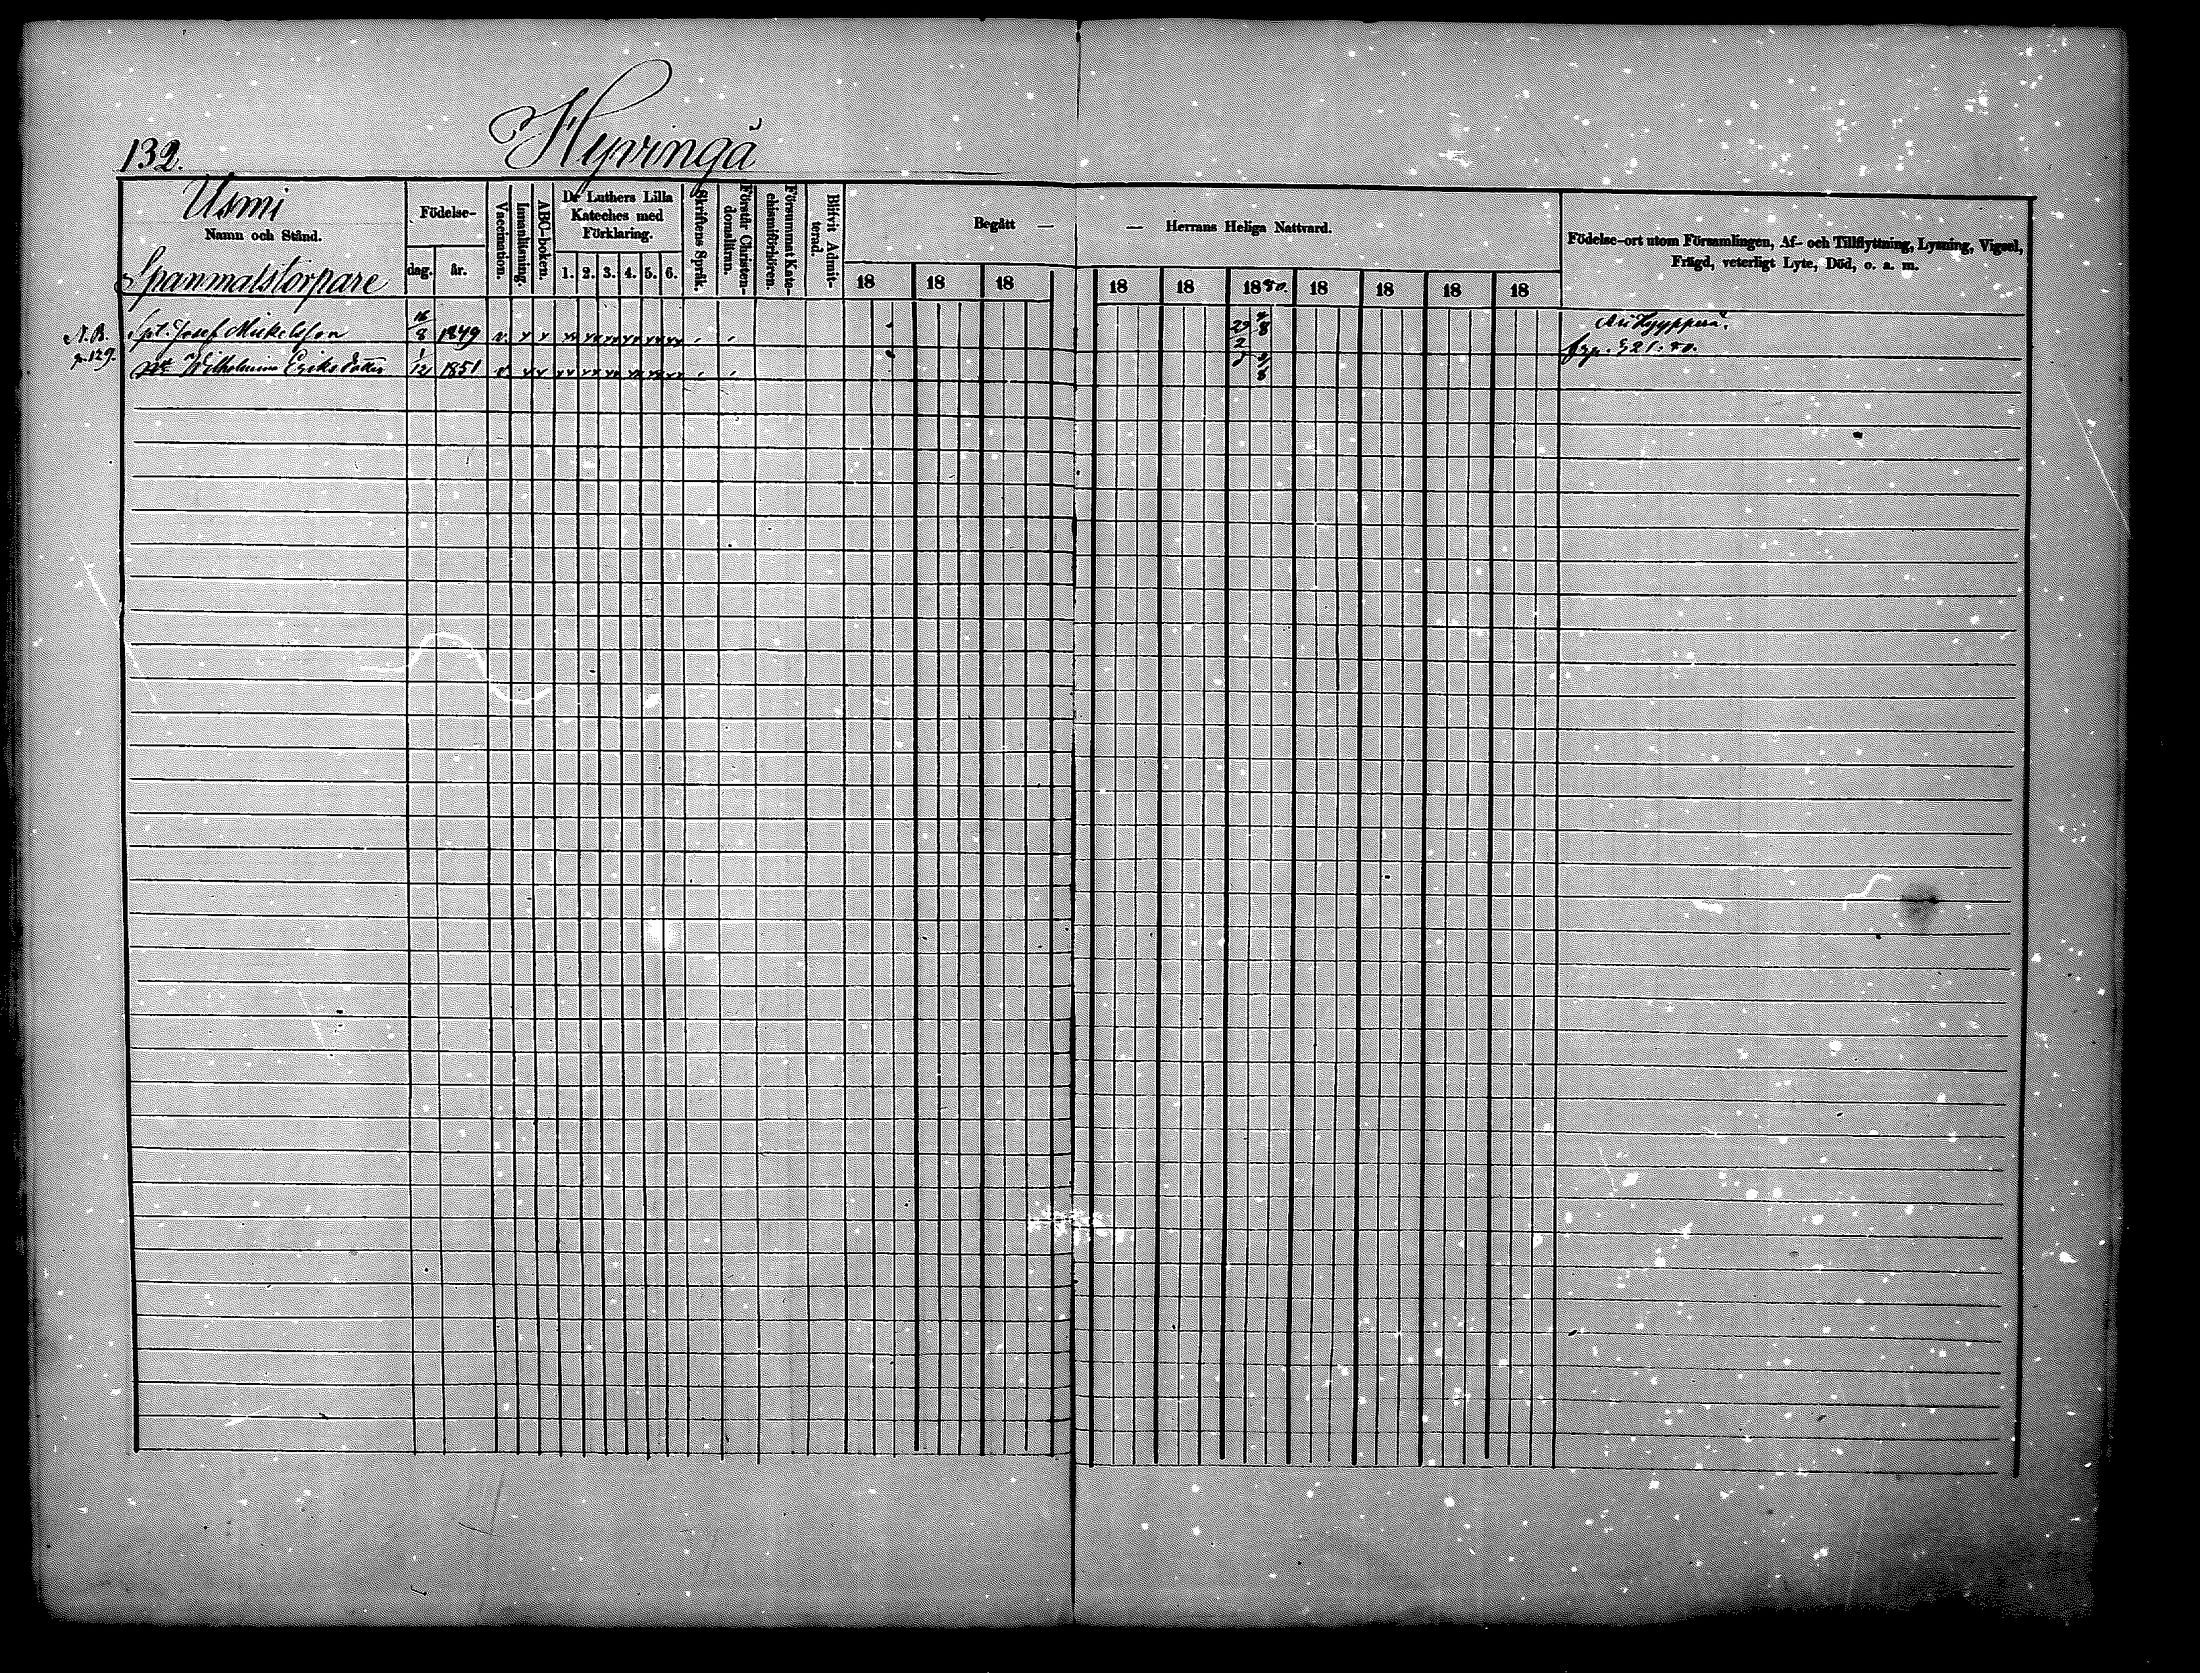 132.
Hyvingä
Usmi
Namn och Stånd.
Spanmålstorpare
Födelse-
dag. år.
Vaccination.
Innanläsning.
ABC-boken.
Dr Luthers Lilla Kateches med Förklaring.
1. 2. 3. 4. 5. 6.
Skriftens Språk.
Förstår Christendomsläran.
Försummat Katechismiförhören.
Blifvit Admitterad.
Begått — — Herrans Heliga Nattvard.
18 18 18 18 18 1880. 18 18 18 18
Födelse-ort utom Församlingen, Af- och Tillflyttning, Lysning, Vigsel, Frägd, veterligt Lyte, Död, o. a. m.
N.B. p. 129.
Spt. Josef Mickelsson 16/8 1849 v.
Wilhelmina Eriksdotter 1/12 1851 v